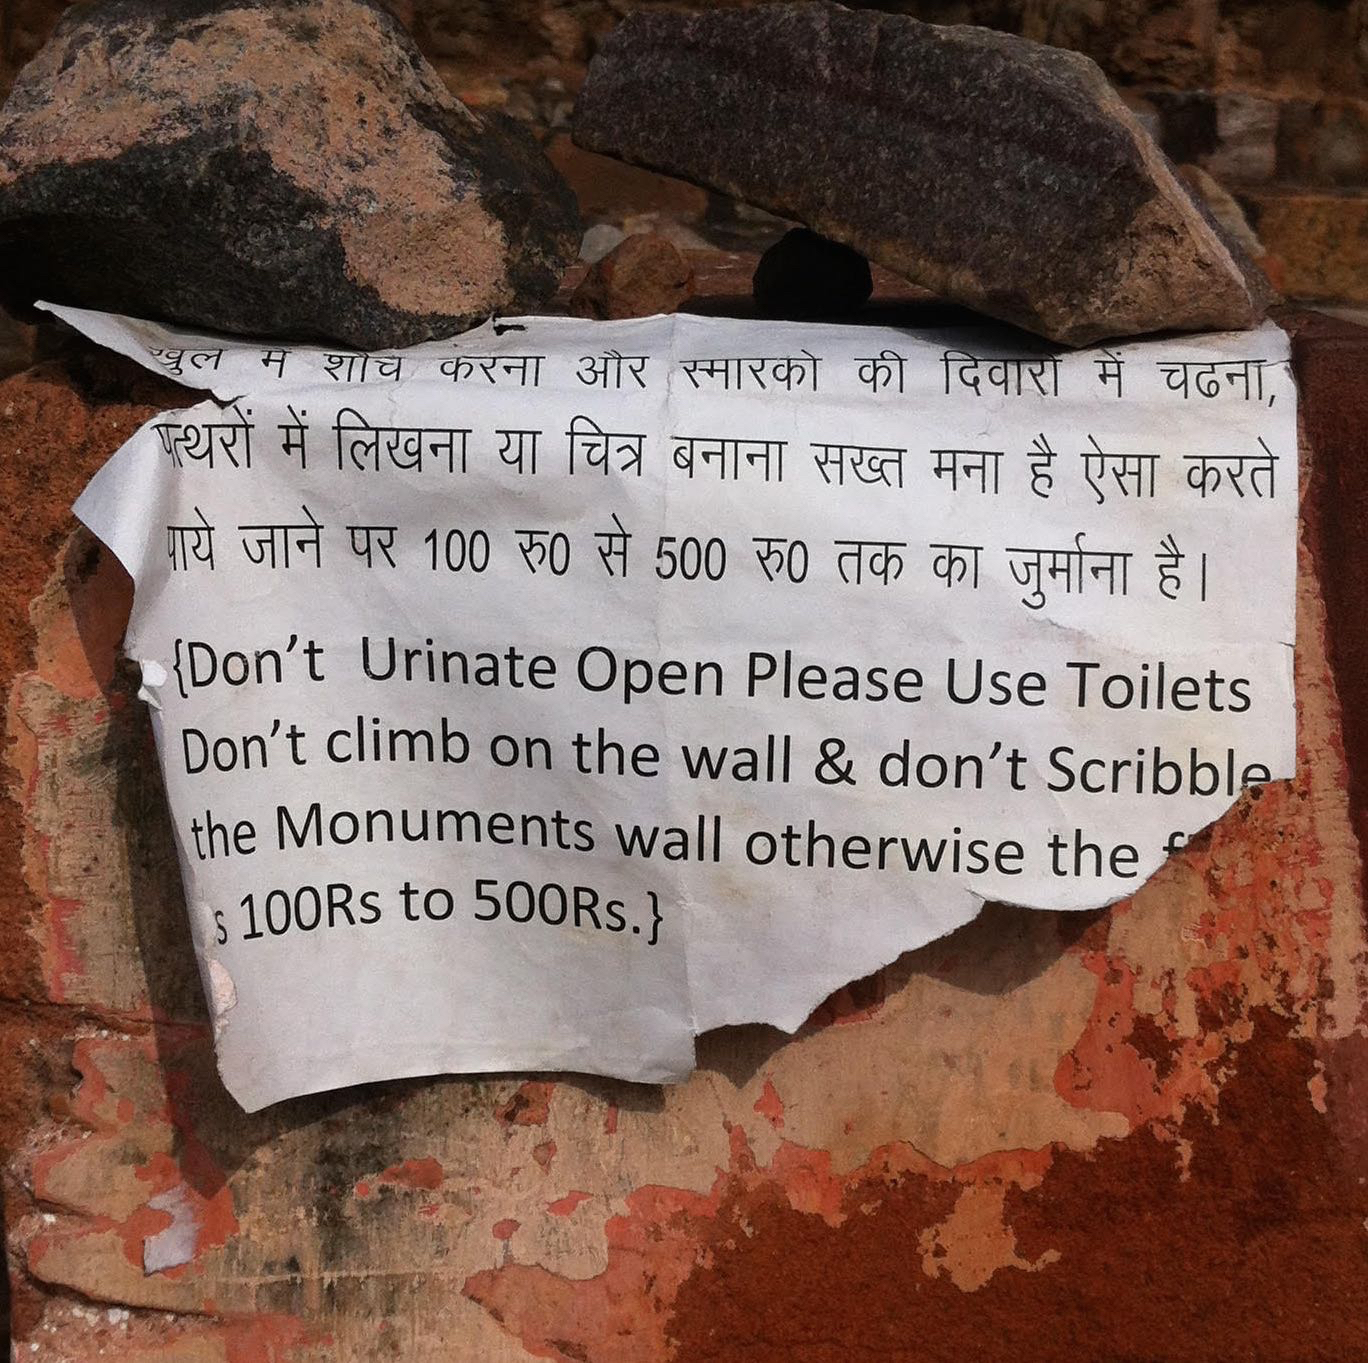 खुले में शौच करना और स्मारको की दिवारों में चढना,
पत्थरों में लिखना या चित्र बनाना सख्त मना है ऐसा करते
पाये जाने पर 100 रु0 से 500 रु0 तक का जुर्माना है।
{Don't Urinate Open Please Use Toilets
Don't climb on the wall & don't Scribble
the Monuments wall otherwise the
s 100Rs to 500Rs.}